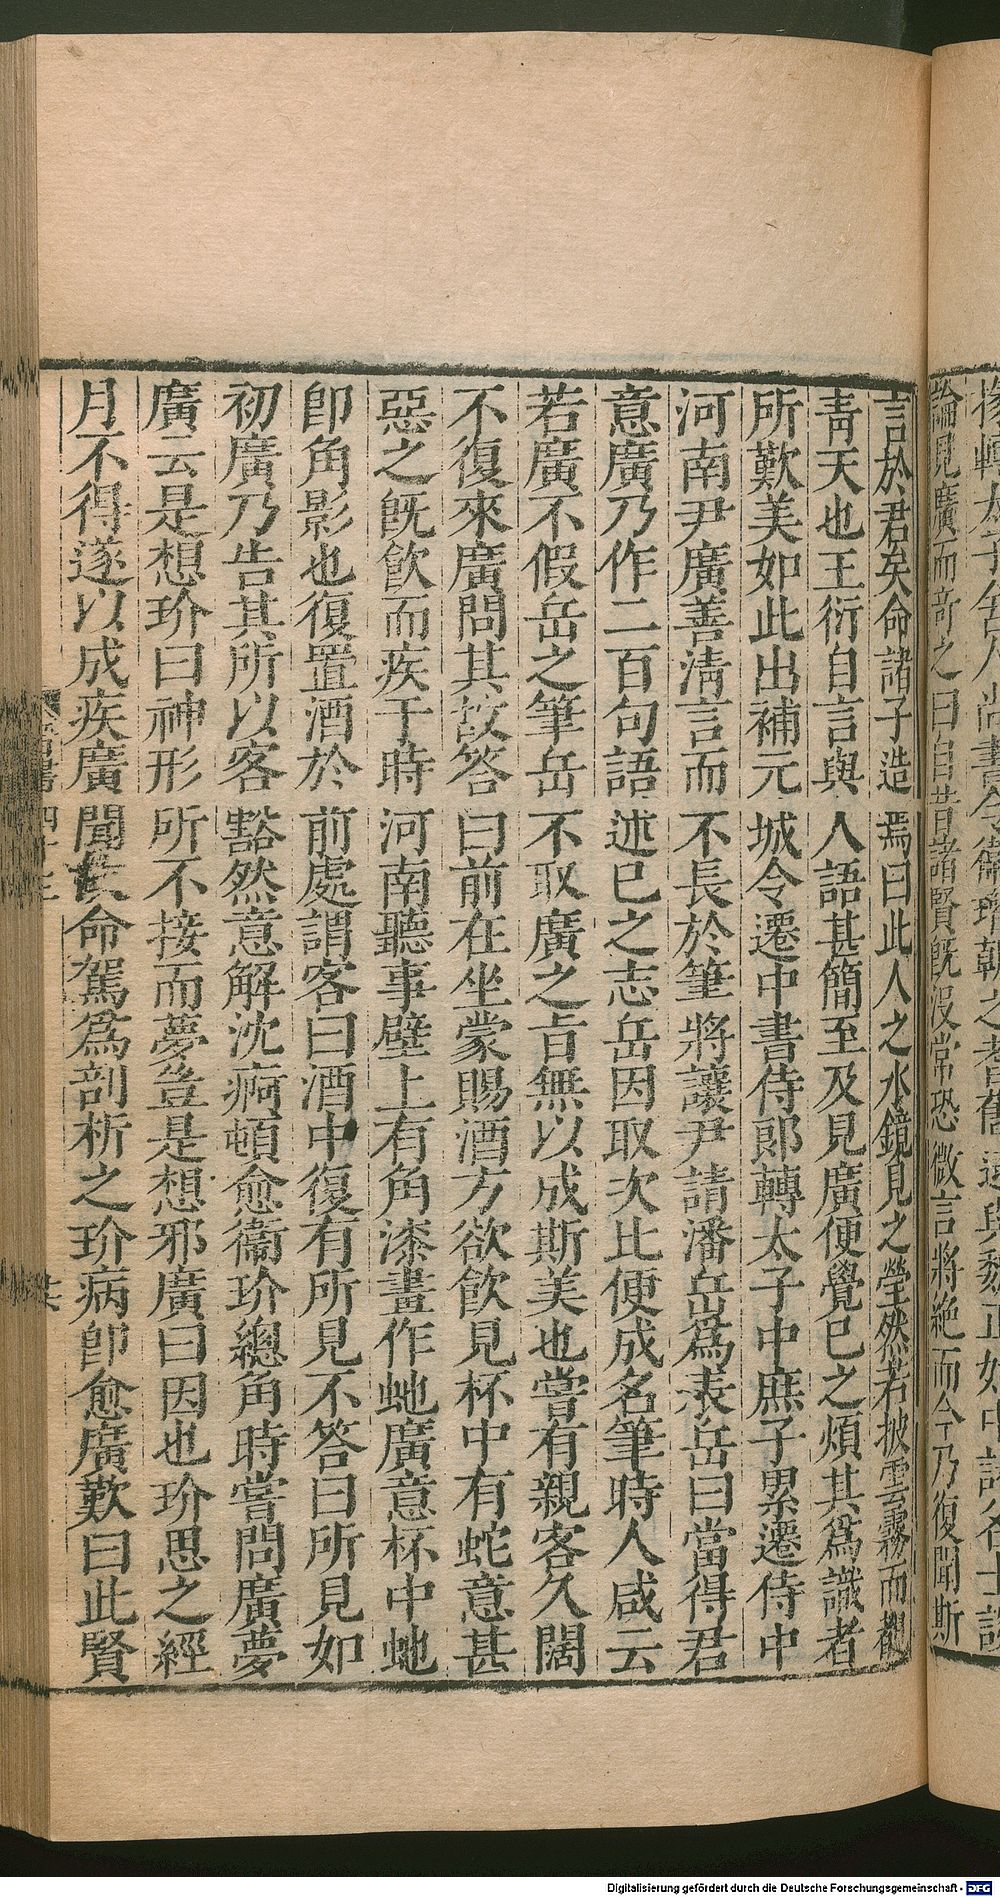 論見廣而奇之曰自昔諸賢旣沒常恐微言將絶而今乃復聞斯
言於君矣命諸子造焉曰此人之水鏡見之瑩然若披雲霧而覩
靑天也王衍自言與人語甚簡至及見廣便覺已之煩其爲識者
所歎美如此出補元城令遷中書侍郎轉太子中庶子累遷侍中
河南尹廣善淸言而不長於筆將讓尹請潘岳爲表岳曰當得君
意廣乃作二百句語述已之志岳因取次比便成名筆時人咸云
若廣不假岳之筆岳不取廣之旨無以成斯美也嘗有親客久闊
不復來廣問其故答曰前在坐蒙賜酒方欲飮見杯中有蛇意甚
惡之旣飮而疾于時河南聽事壁上有角漆畫作虵廣意杯中虵
卽角影也復置酒於前處謂客曰酒中復有所見不答曰所見如
初廣乃告其所以客豁然意解沈痾頓愈衞玠總角時嘗問廣夢
廣云是想玠曰神形所不接而夢豈是想邪廣曰因也玠思之經
月不得遂以成疾廣聞故命駕爲剖析之玠病卽愈廣歎曰此賢
Digitalisierung gefördert durch die Deutsche Forschungsgemeinschaft - DFG